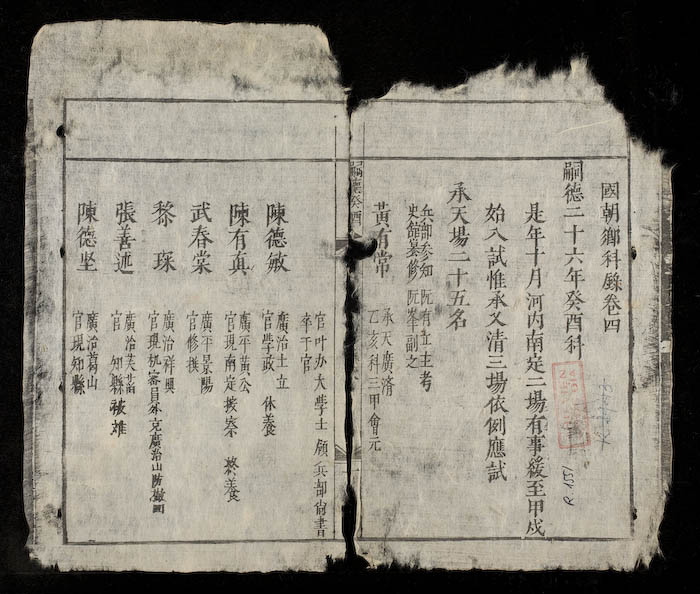 國朝鄉科錄卷四
嗣德二十六年癸酉科
是年十月河內南定二場有事緩至甲戌
始入試惟承乂清三場依例應試
承天場二十五名
兵部參知阮有立主考
史館纂修阮峯副之
黃有常
承天廣濟
乙亥科三甲會元
嗣德癸酉
官叶办大學士領兵部尙書
卒于官
陳德敏
廣治土立
官學政休養
陳有真
廣平黃公
官現南定按察終養
武春棠
廣平景陽
官修撰
黎琛
廣治祥興
張善述
廣治芙蓉
官知縣被雄
陳德坚
廣治葛山
官現知縣
R.1551